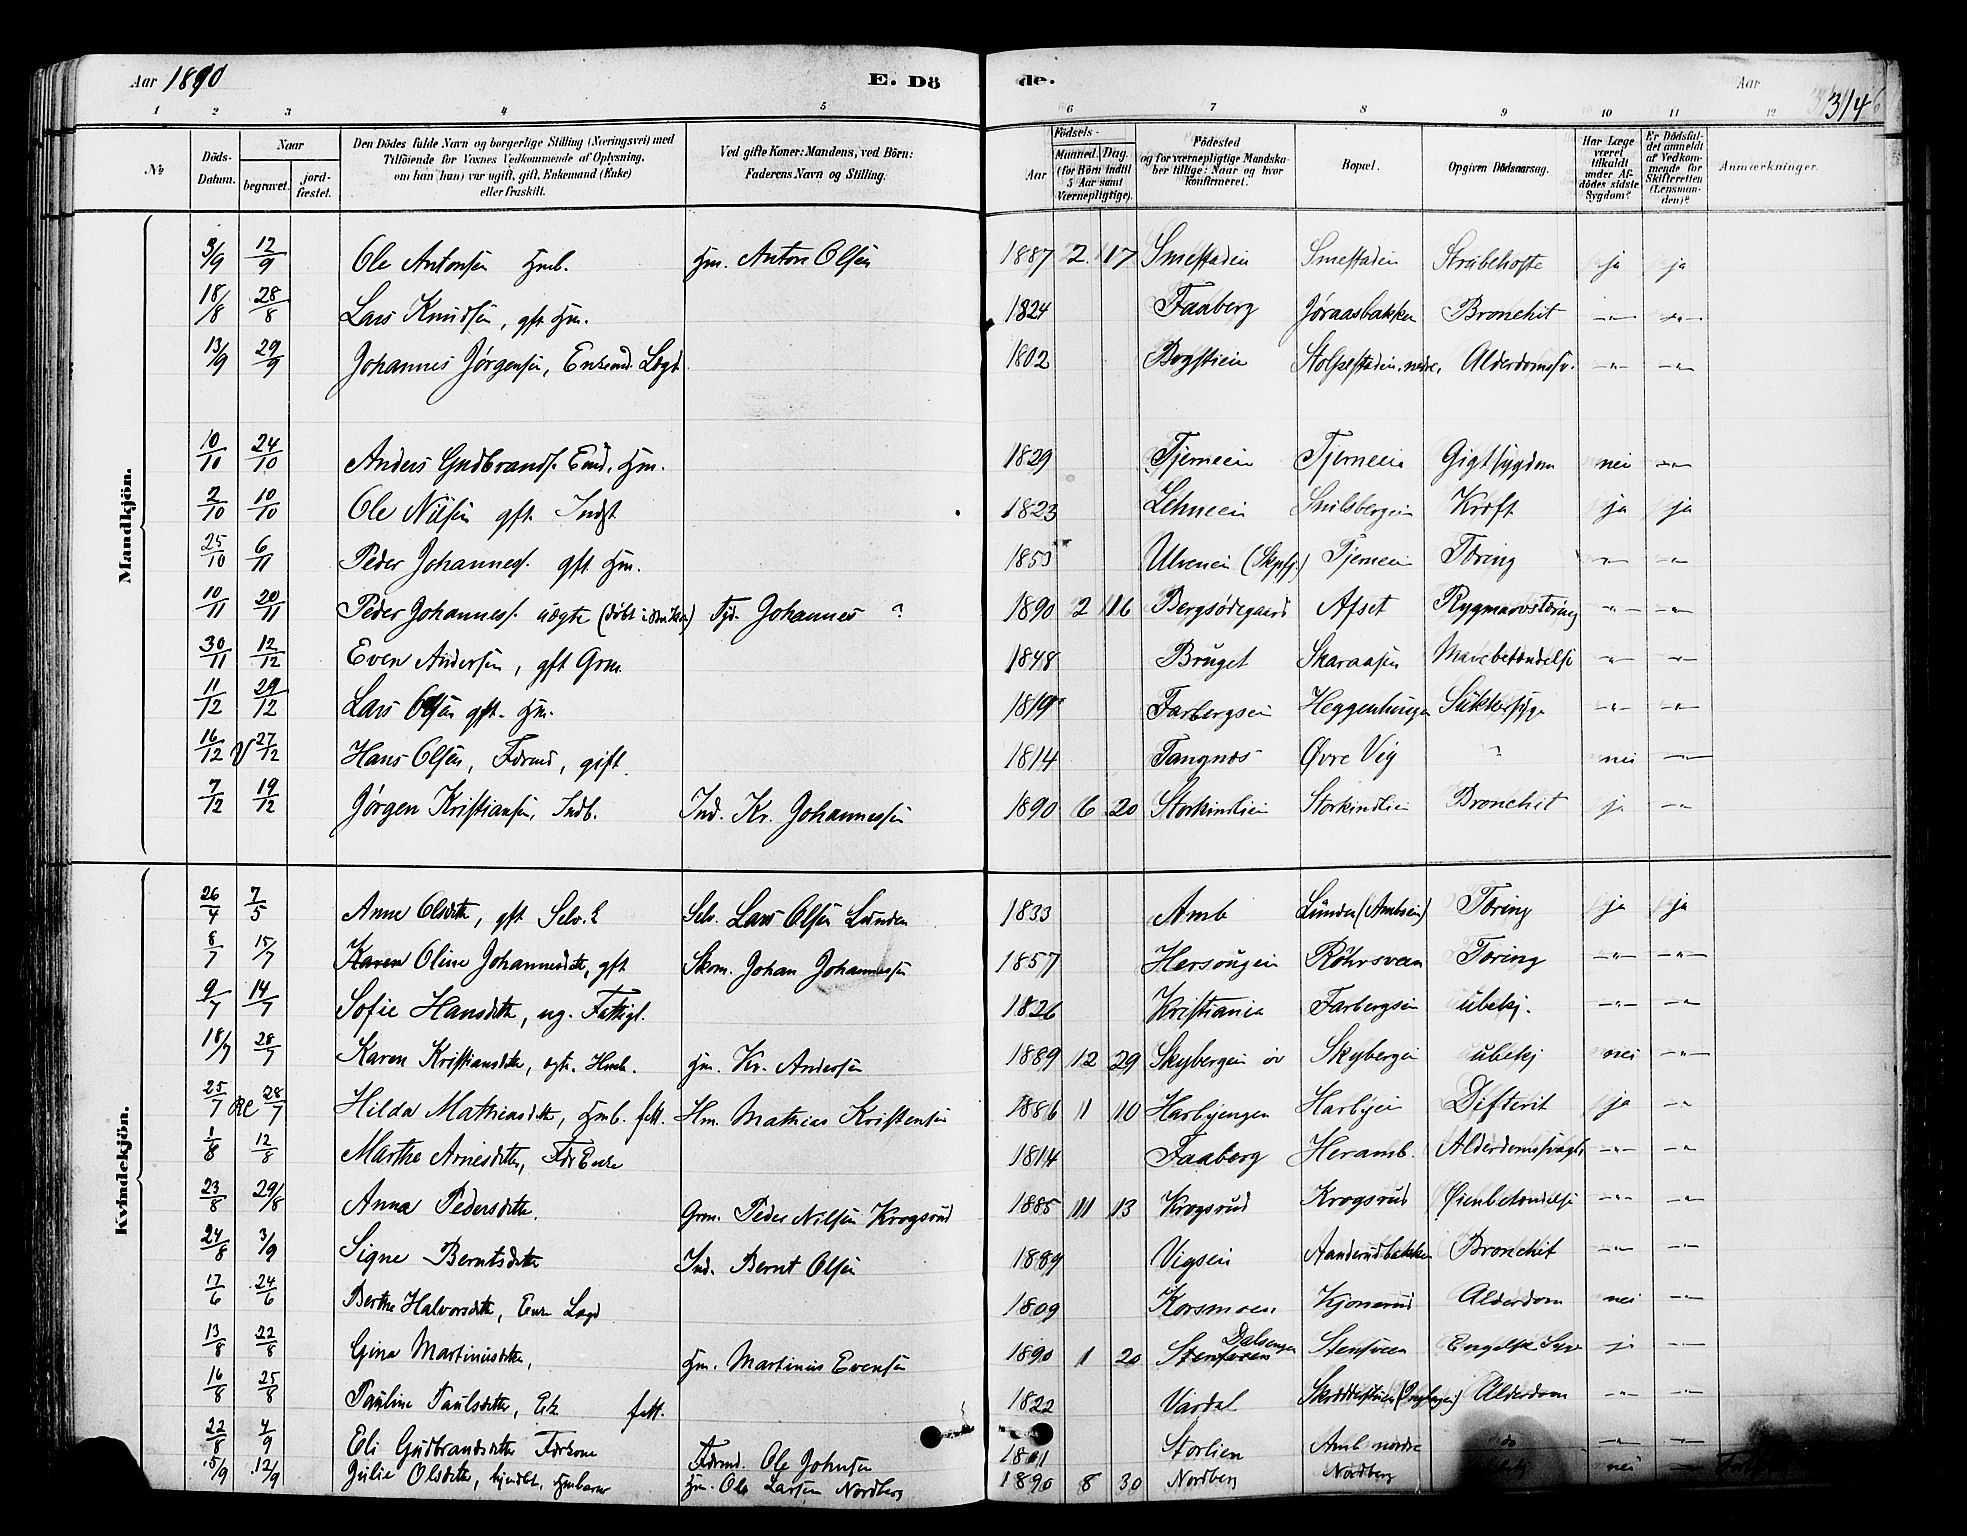 Aar 1890 E. Dö de. Aar 314
1 2 3 4 5 6 7 8 9 10 11 12
№ Döds-Datum. Naar begravet. jord-fæstet. Den Dödes fulde Navn og borgerlige Stilling (Næringsvei) med Tilföiende for Voxnes Vedkommende af Oplysning, om han (hun) var ugift, gift, Enkemand (Enke) eller fraskilt. Ved gifte Koner: Mandens, ved Börn: Faderens Navn og Stilling. Födsels- Aar Maaned. Dag. (for Börn indtil 5 Aar samt Værnepligtige). Födested og for værnepligtige Mandskaber tillige: Naar og hvor konfirmeret. Bopæl. Opgiven Dödsaarsag. Har Læge været tilkaldt under Afdödes sidste Sygdom? Er Dödsfaldet anmeldt af Vedkommende for Skifteretten (Lensmanden)? Anmærkninger.
Mandkjön.
3/9 12/9 Ole Antonsen Hmb. Hm. Anton Olsen 1887 2 17 Smestadein Smestadein Strubehoste ja ja
18/8 28/8 Lars Knudsen, gft Hm. 1824 Faaberg Jøraasbakken Bronchit —"— —"—
13/9 29/9 Johannes Jørgensen, Enkemd. Lægd 1802 Stolpestadein nedre, Alderdomssv. —"— —"—
10/10 24/10 Anders Gudbrands. Emd. Hm. 1829 Tjerneein Tjerneein Gigtsygdom nei —"—
2/10 10/10 Ole Nilsen gft. Indst 1823 Lehneein Snilsbergein Kræft ja ja
25/10 6/11 Peder Johannes. gft Hm. 1853 Ulvenein Tjerneein Tæring —"— —"—
10/11 20/11 Peder Johannes. uægte Fgr. Johannes ? 1890 2 16 Bergsødegaard Afset Rygmarvstæring —"— —"—
30/11 12/12 Even Andersen, gft Grm. 1848 Bruget Skaraasen Mavebetændelse —"— —"—
11/12 29/12 Lars Olsen gft. Hm. 1819 Farbergsein Heggenhaugen Sukkersyge —"— —"—
16/12 V 27/12 Hans Olsen, Fdrmd, gift. 1814 Tangnæs Øvre Vig ? nei —"—
7/12 19/12 Jørgen Kristiansen, Indb. Ind. Kr. Johannessen 1890 6 20 Storkindlien Storkindlien Bronchit ja —"—
Kvindekjön.
26/4 7/5 Anne Olsdtr, gft Selv. Lars Olsen Lunden 1833 Amb Lunden (Ambsein) Tæring ja ja
8/7 15/7 Karen Oline Johannesdtr, gft Skom. Johan Johannessen 1857 Hersougein Röhrsveen Tæring —"— —"—
9/7 14/7 Sofie Hansdtr, ug. Fattigl. 1826 Kristiania Farbergsein ubekj. —"— —"—
18/7 28/7 Karen Kristiansdtr, ægt. Hmb. Hm. Kr. Andersen 1889 12 29 Skybergein øv Skybergein ubekj nei —"—
25/7 28/7 Hilda Mathiasdtr, Hmb. fatt. Hm. Mathias Kristensen 1886 11 10 Harbyengen Harbyein Difterit ja —"
1/8 12/8 Marthe Arnesdtr, Fdr Enke 1814 Faaberg Heramb. Alderdomssvagh. —"— —"—
23/8 29/8 Anna Pedersdtr. Grm. Peder Nilsen Krogsrud 1885 11 13 Krogsrud Krogsrud Øienbetændelse —"— —"—
24/8 3/9 Signe Berntsdtr Ind. Bernt Olsen 1889 Vigsein Aanderudbakken Bronchit —"— —"—
17/6 24/6 Berthe Halvorsdtr, Enke Lægd 1809 Korsmoen Kjonerud Alderdom nei —"—
13/8 22/8 Gina Martinusdtr, Hm. Martinus Evensen 1890 1 20 Stensveen Dalsengen Stensveen Engelsk Syge ja —"—
16/8 25/8 Pauline Paulsdtr, Ek fatt. 1822 Vardal Alderdom —"— —"—
22/8 4/9 Eli Gudbrandsdtr Fdrkone Fdrmd. Ole Johnsen 1801 Storlien Amb nordre do —"— —"—
5/9 12/9 Julie Olsdtr, hjmdbt. Hmbarn Hm. Ole Larsen Nordberg 1890 8 30 Nordberg Nordberg nei —"—